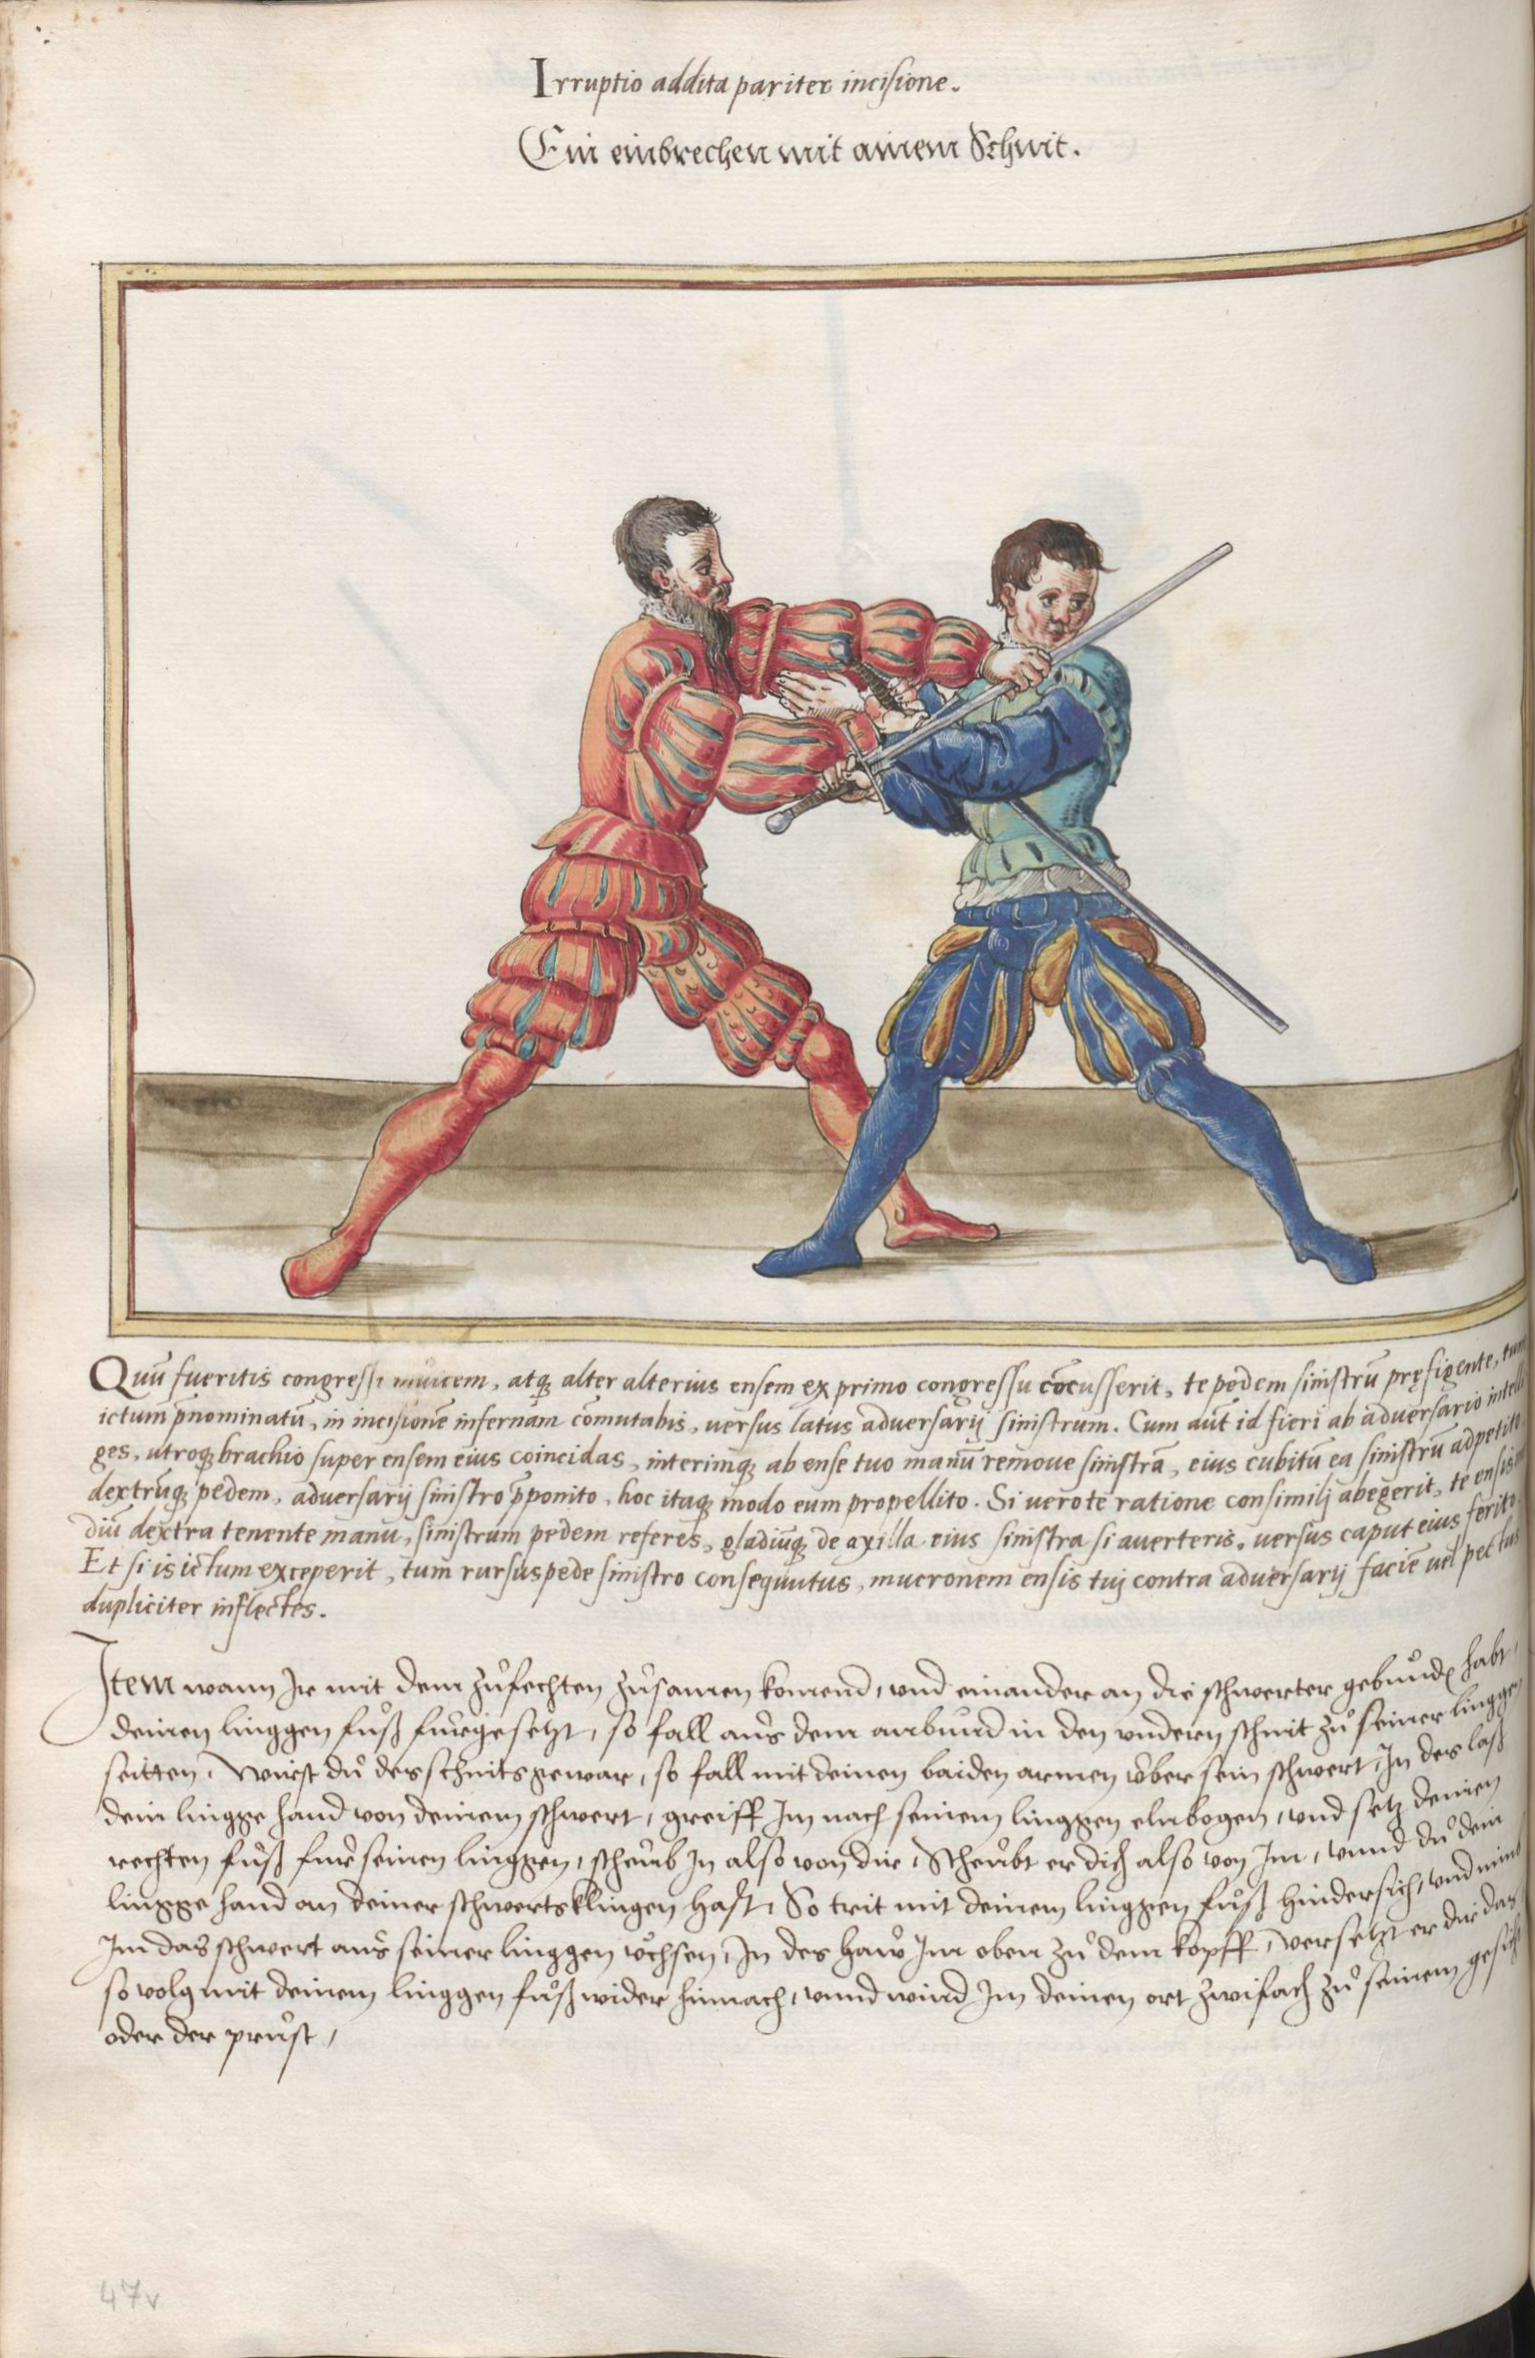 Irruptio addita pariter incisione.
Ein einbrechen mit ainem Schnit.
Quū fueritis congressi invicem, atq; alter alterius ensem ex primo congressu cōcusserit, te pedem sinistrū pręfigente, tum
ictum p̄nominatū, in incisionē infernam cōmutabis, versus latus adversarij sinistrum. Cum aūt id fieri ab adversario intelli
ges, utroq; brachio super ensem eius coincidas, interimq; ab ense tuo manū remove sinistrā, eius cubitū ea sinistrū adpetito
dextrūq; pedem, adversarij sinistro p̄ponito, hoc itaq; modo eum propellito. Si vero te ratione consimilj abegerit, te ensis
diū dextra tenente manu, sinistrum pedem referes, gladiūq; de axilla eius sinistra si averteris, versus caput eius ferito.
Et si is ictum exceperit, tum rursus pede sinistro consequutus, mucronem ensis tuj contra adversarij faciē vel pectus
dupliciter inflectes.
Item wann Ir mit dem zůfechten zůsamen komend, vnd einander an die schwerter gebunden habt,
deinen linggen fůß furgesetzt, so fall aus dem anbund in den vndern schnit zů seiner linggen
seitten, Wirst du des schnits gewar, so fall mit deinen baiden armen vber sein schwert, In des laß
dein lingge hand von deinem schwert, greiff Im nach seinem linggen elnbogen, vnd setz deinen
rechten fůß fur seinen linggen, scheub In also von dir, Scheubt er dich also von Im, vnnd du dein
lingge hand an deiner schwertsklingen hast, So trit mit deinem linggen fůß hindersich, vnd nimb
Im das schwert aus seiner linggen vchsen, In des haw Im oben zů dem kopff, versetzt er dir das
so volg mit deinem linggen fůß wider hinnach, vnnd wind Im deinen ort zwifach zů seinem gesicht
oder der prust,
47v